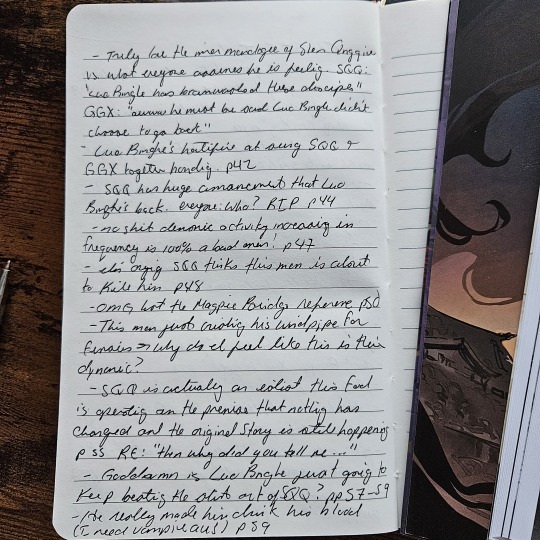 - Truly love the inner monologue of Shen Qingqiu
vs what everyone assumes he is feeling. SQQ:
"Luo Binghe has brainwashed these disciples"
GGX: "awww he must be sad Luo Binghe didn't
choose to go back"
- Luo Binghe's hatefire at seeing SQQ &
GGX together handing. p42
- SQQ has huge announcement that Luo
Binghe's back. everyone: Who? RIP p44
- no shit demonic activity increasing in
frequency is 100% a bad omen! p47
- SQQ thinks this man is about
to kill him p48
- OMG not the Magpie Bridge reference p50
- This man just crushing his windpipe for
funsies -> why do I feel like this is their
dynamic?
- SQQ is actually an idiot this fool
is operating on the premise that nothing has
changed and the original story is still happening
p55 RE: "then why did you tell me..."
- Goddamn is Luo Binghe just going to
keep beating the shit out of SQQ? pp57-59
- He really made him drink his blood
(I need vampire aus) p59